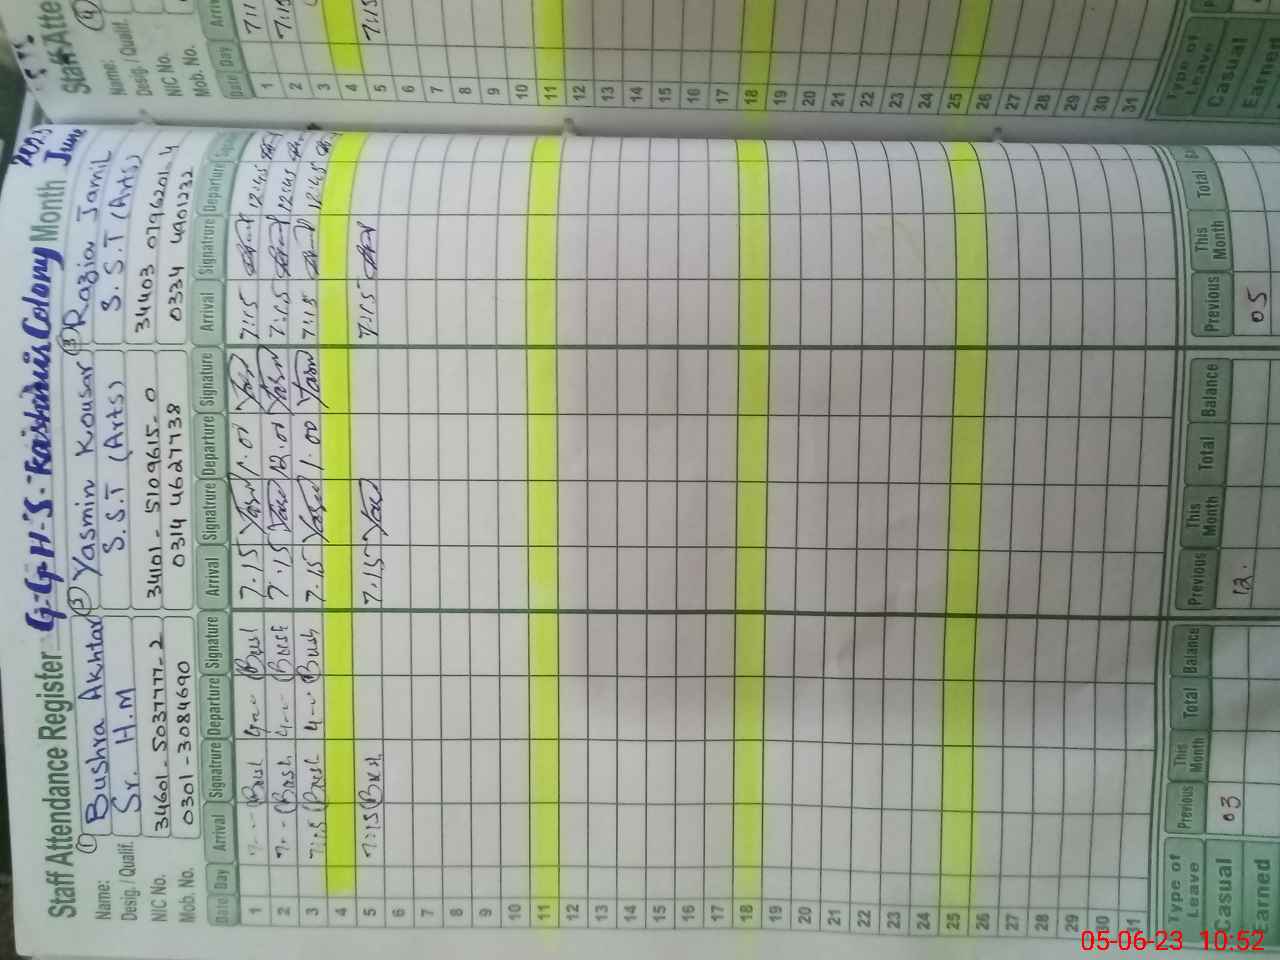 Staff Attendance Register G.G.H.S. Kashmir Colony Month June 2023
Name: ① Bushra Akhtar ② Yasmin Kousar ③ Razia Jamil
Desig. / Qualif. Sr. H.M S.S.T (Arts) S.S.T (Arts)
NIC No. 34601-5037777-2 34101-5109615-0 34403 0796201-4
Mob. No. 0301-3084690 0314 4627738 0334 4901232
Date Day Arrival Signature Departure Signature Arrival Signatrure Departure Signature Arrival Signatrure Departure
1 Bush 7.15 Yasm 7:15 12:45
2 Bush 7.15 Yasm 12.01 Yasm 7:15 12:45
3 7:15 Bush Bush 7.15 Yasm 1.00 Yasm 7:15 12:45
4
5 7:15 Bush 7.15 Yasm 7:15
6
7
8
9
10
11
12
13
14
15
16
17
18
19
20
21
22
23
24
25
26
27
28
29
30
31
Type of Leave Previous This Month Total Balance Previous This Month Total Balance Previous This Month Total
Casual 03 12. 05
Earned
Staff Atte
④
Name:
Desig. / Qualif.
NIC No.
Mob. No.
Date Day
1
2
3
4
5 7:15
6
7
8
9
10
11
12
13
14
15
16
17
18
19
20
21
22
23
24
25
26
27
28
29
30
31
Type of Leave
Casual
Earned
05-06-23 10:52